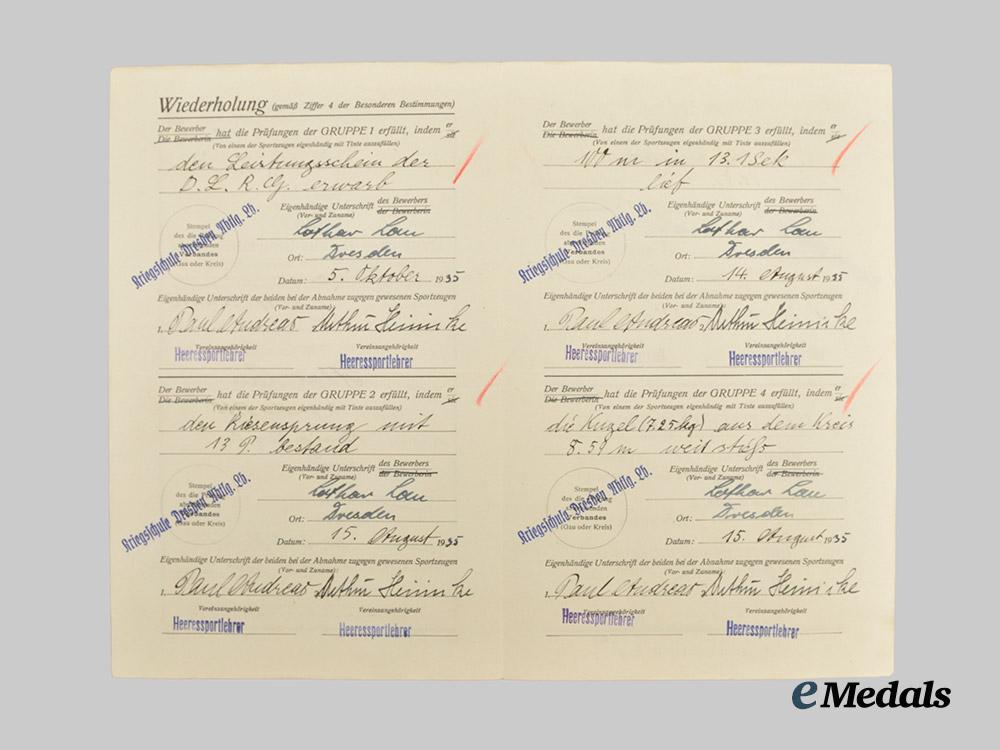 Wiederholung (gemäß Ziffer 4 der Besonderen Bestimmungen)
Der Bewerber
Die Bewerberin
hat die Prüfungen der GRUPPE 1 erfüllt, indem er
sie
(Von einem der Sportzeugen eigenhändig mit Tinte auszufüllen)
den Leistungsschein der
D. L. R. G. erwarb
Eigenhändige Unterschrift des Bewerbers
der Bewerberin
(Vor- und Zuname)
Stempel
des die
Verbandes
(Gau oder Kreis)
Kriegsschule Dresden Abtlg. Lb.
Lothar Lau
Ort: Dresden
Datum: 5. Oktober 1935
Eigenhändige Unterschrift der beiden bei der Abnahme zugegen gewesenen Sportzeugen
(Vor- und Zuname)
Paul Andreas Arthur Heinicke
Vereinsangehörigkeit
Heeressportlehrer Heeressportlehrer
Der Bewerber
Die Bewerberin
hat die Prüfungen der GRUPPE 2 erfüllt, indem er
sie
(Von einem der Sportzeugen eigenhändig mit Tinte auszufüllen)
den Riesensprung mit
13 P. bestand
Eigenhändige Unterschrift des Bewerbers
der Bewerberin
(Vor- und Zuname)
Stempel
des die
Verbandes
(Gau oder Kreis)
Kriegsschule Dresden Abtlg. Lb.
Lothar Lau
Ort: Dresden
Datum: 15. August 1935
Eigenhändige Unterschrift der beiden bei der Abnahme zugegen gewesenen Sportzeugen
(Vor- und Zuname)
Paul Andreas Arthur Heinicke
Vereinsangehörigkeit
Heeressportlehrer Heeressportlehrer
Der Bewerber
Die Bewerberin
hat die Prüfungen der GRUPPE 3 erfüllt, indem er
sie
(Von einem der Sportzeugen eigenhändig mit Tinte auszufüllen)
100 m in 13.1 Sek
lief
Eigenhändige Unterschrift des Bewerbers
der Bewerberin
(Vor- und Zuname)
Stempel
des die
Verbandes
(Gau oder Kreis)
Kriegsschule Dresden Abtlg. Lb.
Lothar Lau
Ort: Dresden
Datum: 14. August 1935
Eigenhändige Unterschrift der beiden bei der Abnahme zugegen gewesenen Sportzeugen
(Vor- und Zuname)
Paul Andreas Arthur Heinicke
Vereinsangehörigkeit
Heeressportlehrer Heeressportlehrer
Der Bewerber
Die Bewerberin
hat die Prüfungen der GRUPPE 4 erfüllt, indem er
sie
(Von einem der Sportzeugen eigenhändig mit Tinte auszufüllen)
die Kugel (7.25 kg) aus dem Kreis
8.59 m weit stößt
Eigenhändige Unterschrift des Bewerbers
der Bewerberin
(Vor- und Zuname)
Stempel
des die
Verbandes
(Gau oder Kreis)
Kriegsschule Dresden Abtlg. Lb.
Lothar Lau
Ort: Dresden
Datum: 15. August 1935
Eigenhändige Unterschrift der beiden bei der Abnahme zugegen gewesenen Sportzeugen
(Vor- und Zuname)
Paul Andreas Arthur Heinicke
Vereinsangehörigkeit
Heeressportlehrer Heeressportlehrer
eMedals